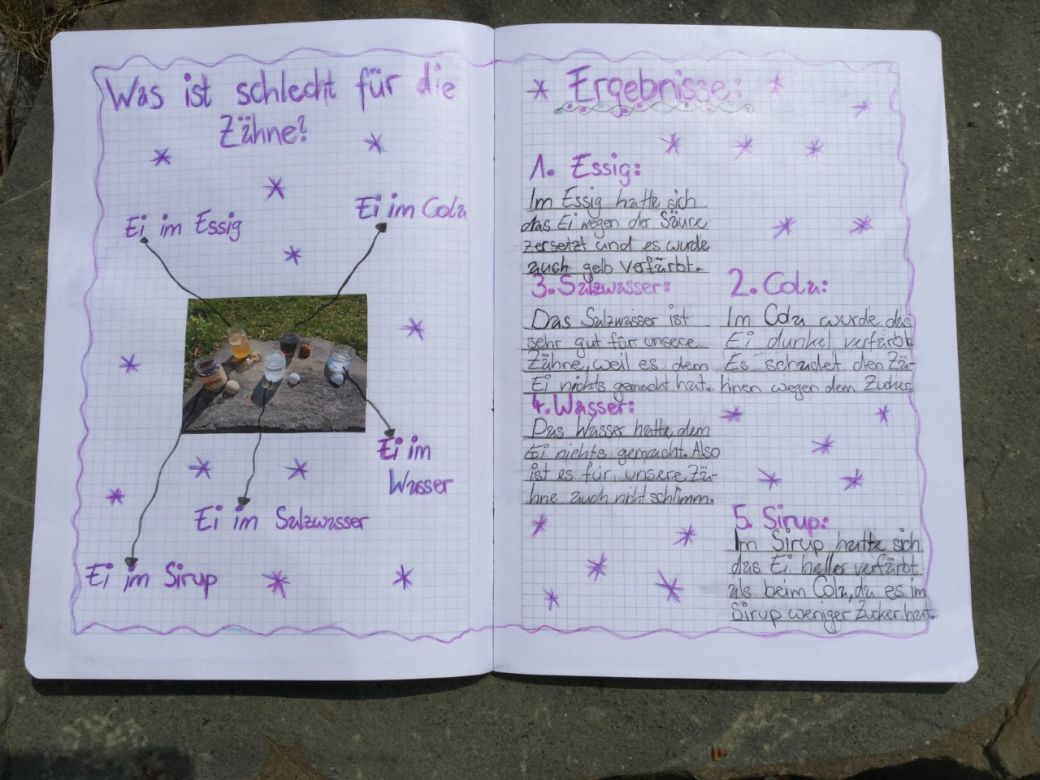 Was ist schlecht für die
Zähne?
Ei im Essig
Ei im Cola
Ei im
Wasser
Ei im Salzwasser
Ei im Sirup
Ergebnisse:
1. Essig:
Im Essig hatte sich
das Ei wegen der Säure
zersetzt und es wurde
auch gelb verfärbt.
2. Cola:
Im Cola wurde das
Ei dunkel verfärbt.
Es schadet den Zä-
hnen wegen dem Zucker.
3. Salzwasser:
Das Salzwasser ist
sehr gut für unsere
Zähne, weil es dem
Ei nichts gemacht hat.
4. Wasser:
Das Wasser hatte dem
Ei nichts gemacht. Also
ist es für unsere Zä-
hne auch nicht schlimm.
5. Sirup:
Im Sirup hatte sich
das Ei heller verfärbt
als beim Cola, da es im
Sirup weniger Zucker hat.